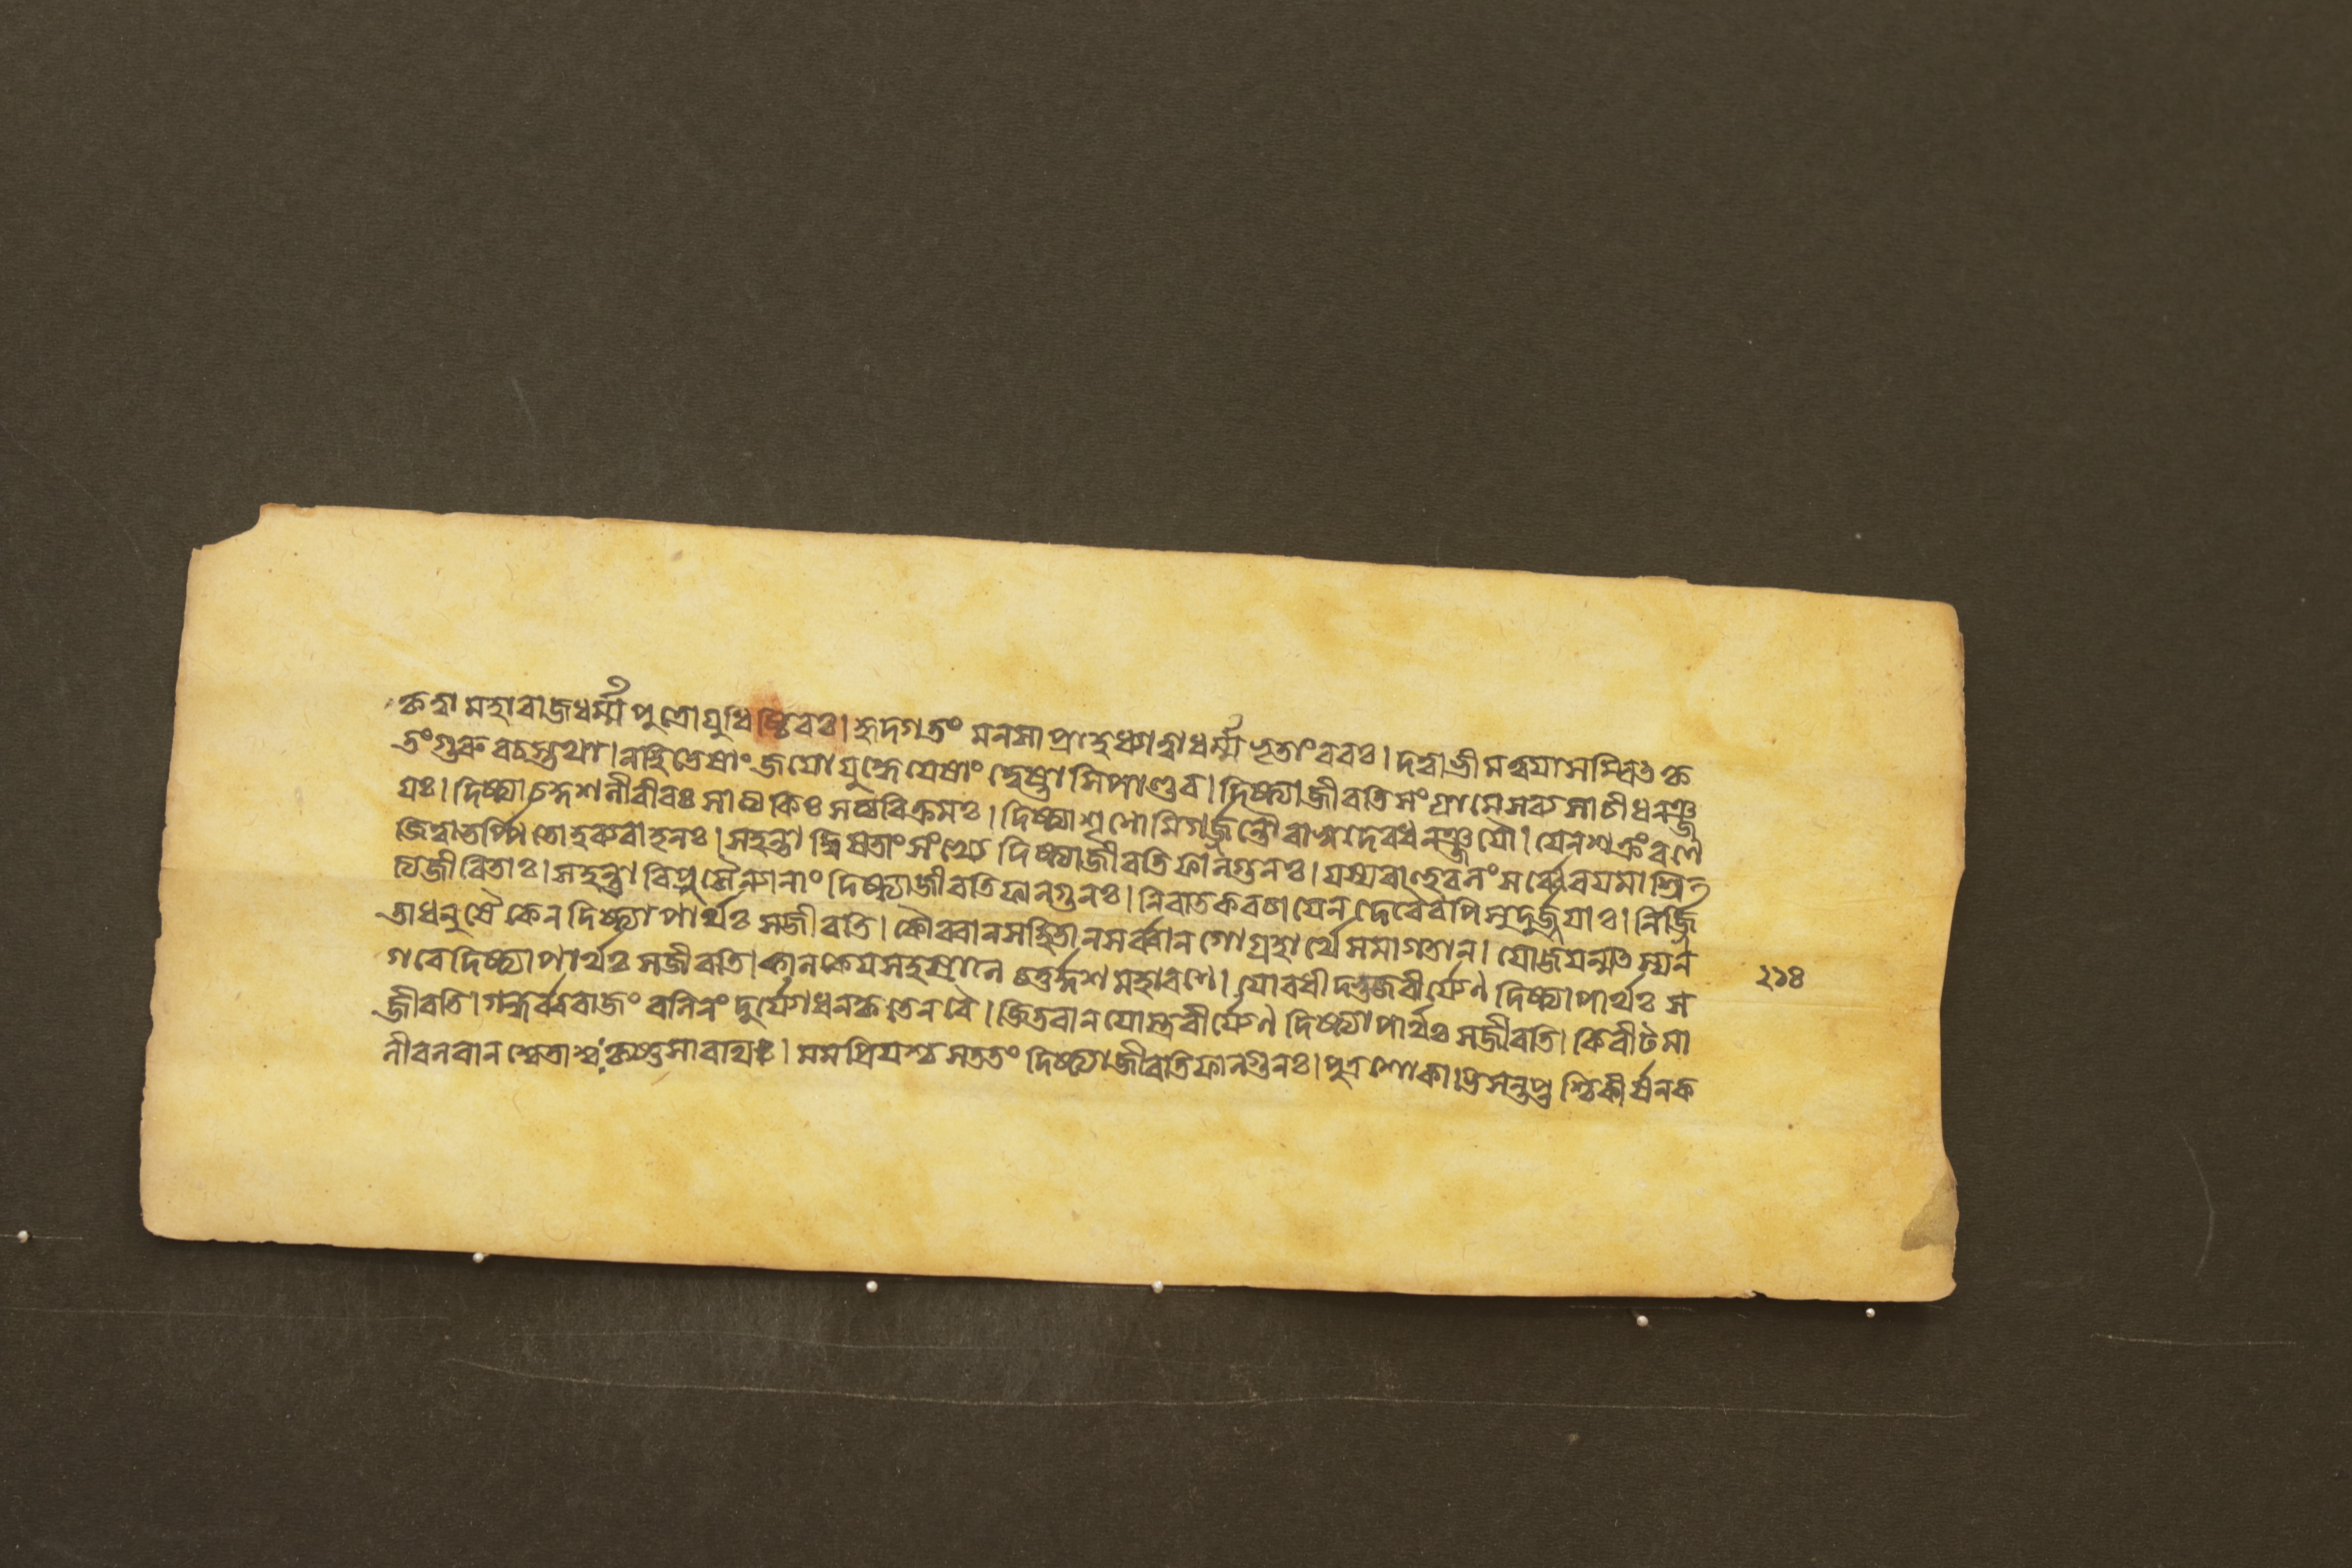 কৃত্বা মহারাজধর্ম্মপুত্রোযুধিষ্ঠিরঃ। হৃদগতং মনসাপ্রাহধ্যাত্বাধর্ম্মভৃতাংবরঃ। দত্বাভীমত্বযাসম্বিৎকৃ
তংগুরুবচস্তথা। নহিতেষাং জযোযুদ্ধে যেষাং দ্বেষ্টাসিপাণ্ডব। দিষ্ট্যাজীবতিসংগ্রামেসব্যসাচীধনঞ্জ
যঃ। দিষ্ট্যাচকুশলীবীরঃ সাত্যকিঃ সত্যবিক্রমঃ। দিষ্ট্যাশৃণোমিগর্জ্জন্তৌবাসুদেবধনঞ্জযৌ। যেনশক্রংরণে
জিত্বাতর্পিতোহব্যবাহনঃ। সহন্তা দ্বিষতাংসংখ্যে দিষ্ট্যাজীবতিফাল্গুনঃ। যস্যবাহুবলং সর্ব্বেবযমাশ্রি
ত্যজীবিতাঃ। সহন্তা রিপুসৈন্যানাং দিষ্ট্যাজীবতিফাল্গুনঃ। নিবাতকবচাযেন দেবৈরপিসুদুর্জ্জযাঃ। নির্জ্জি
তাধনুষৈকেন দিষ্ট্যাপার্থঃ সজীবতি। কৌরবানসহিতানসর্ব্বানগোগ্রহার্থেসমাগতান। যোজযন্মৎস্যন
গরেদিষ্ট্যাপার্থঃ সজীবতি। কালকেযসহস্রানি চতুর্দ্দশমহারণে। যোবধীদ্ভুজবীর্যেণ দিষ্ট্যাপার্থঃ স
জীবতি। গন্ধর্ব্বরাজং বলিনং দুর্যোধনকৃতেনবৈ। জিতবানযোস্ত্রবীর্যেণ দিষ্ট্যাপার্থঃ সজীবতি। কিরীটমা
লীবলবান শ্বেতাশ্বঃকৃষ্ণসারথিঃ। মমপ্রিযশ্চসততং দিষ্ট্যাজীবতিফাল্গুনঃ। পুত্রশোকাভিসন্তপ্তশ্চিকীর্ষনক
২১৪